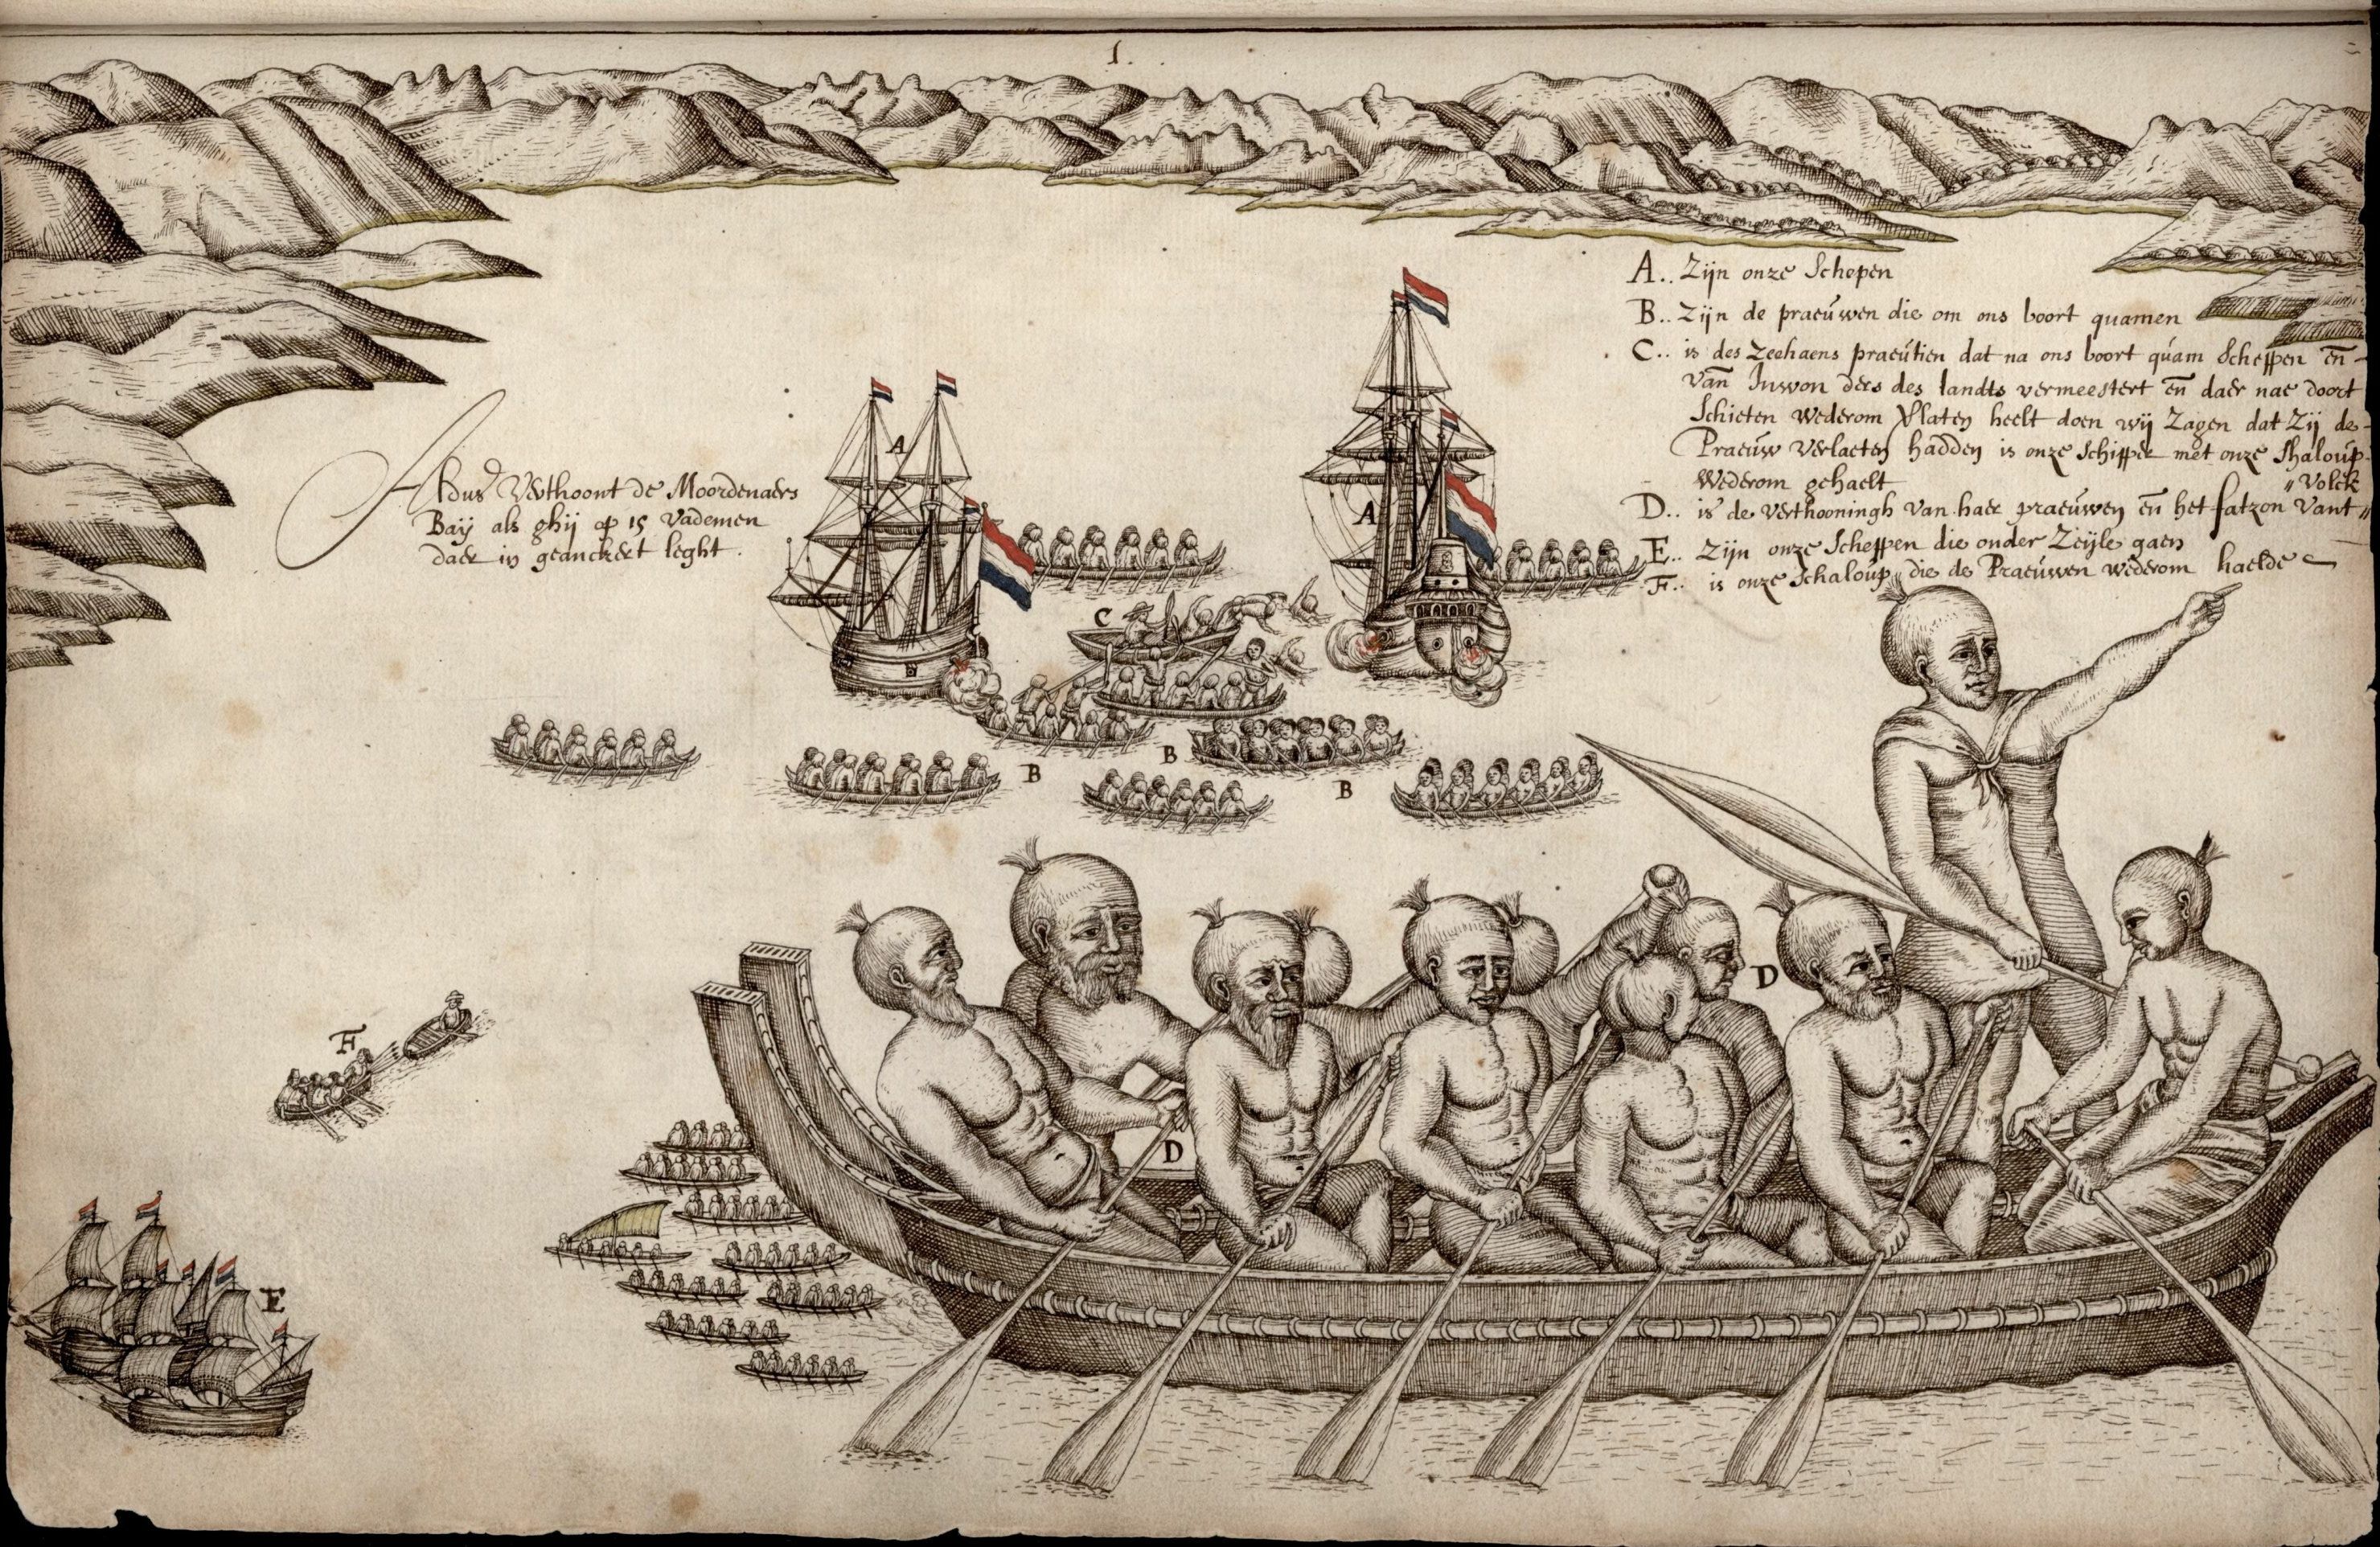 1.
Aldus Verthoont de Moordenaers
Baij als ghij op 15 Vademen
daer in geanckert leght.
A.. Zijn onze Schepen
B.. Zijn de praeúwen die om ons boort quamen
C.. is des Zeehaens praeútien dat na ons boort qúam Scheppen en̄
van Inwon ders des landts vermeestert en̄ daer nae doort
Schieten wederom Vlaten heelt doen wij Zagen dat Zij de
Praeúw Verlaeten hadden is onze Schipper met onze Shaloúp
wederom gehaelt
D.. is de verthooningh van haer praeúwen en̄ het fatzon vant
"Volck
E.. Zijn onze Scheppen die onder Zeijle gaen
F.. is onze Schaloúp die de Praeúwen wederom haelde
A
A
C
B
B
B
D
D
F
E